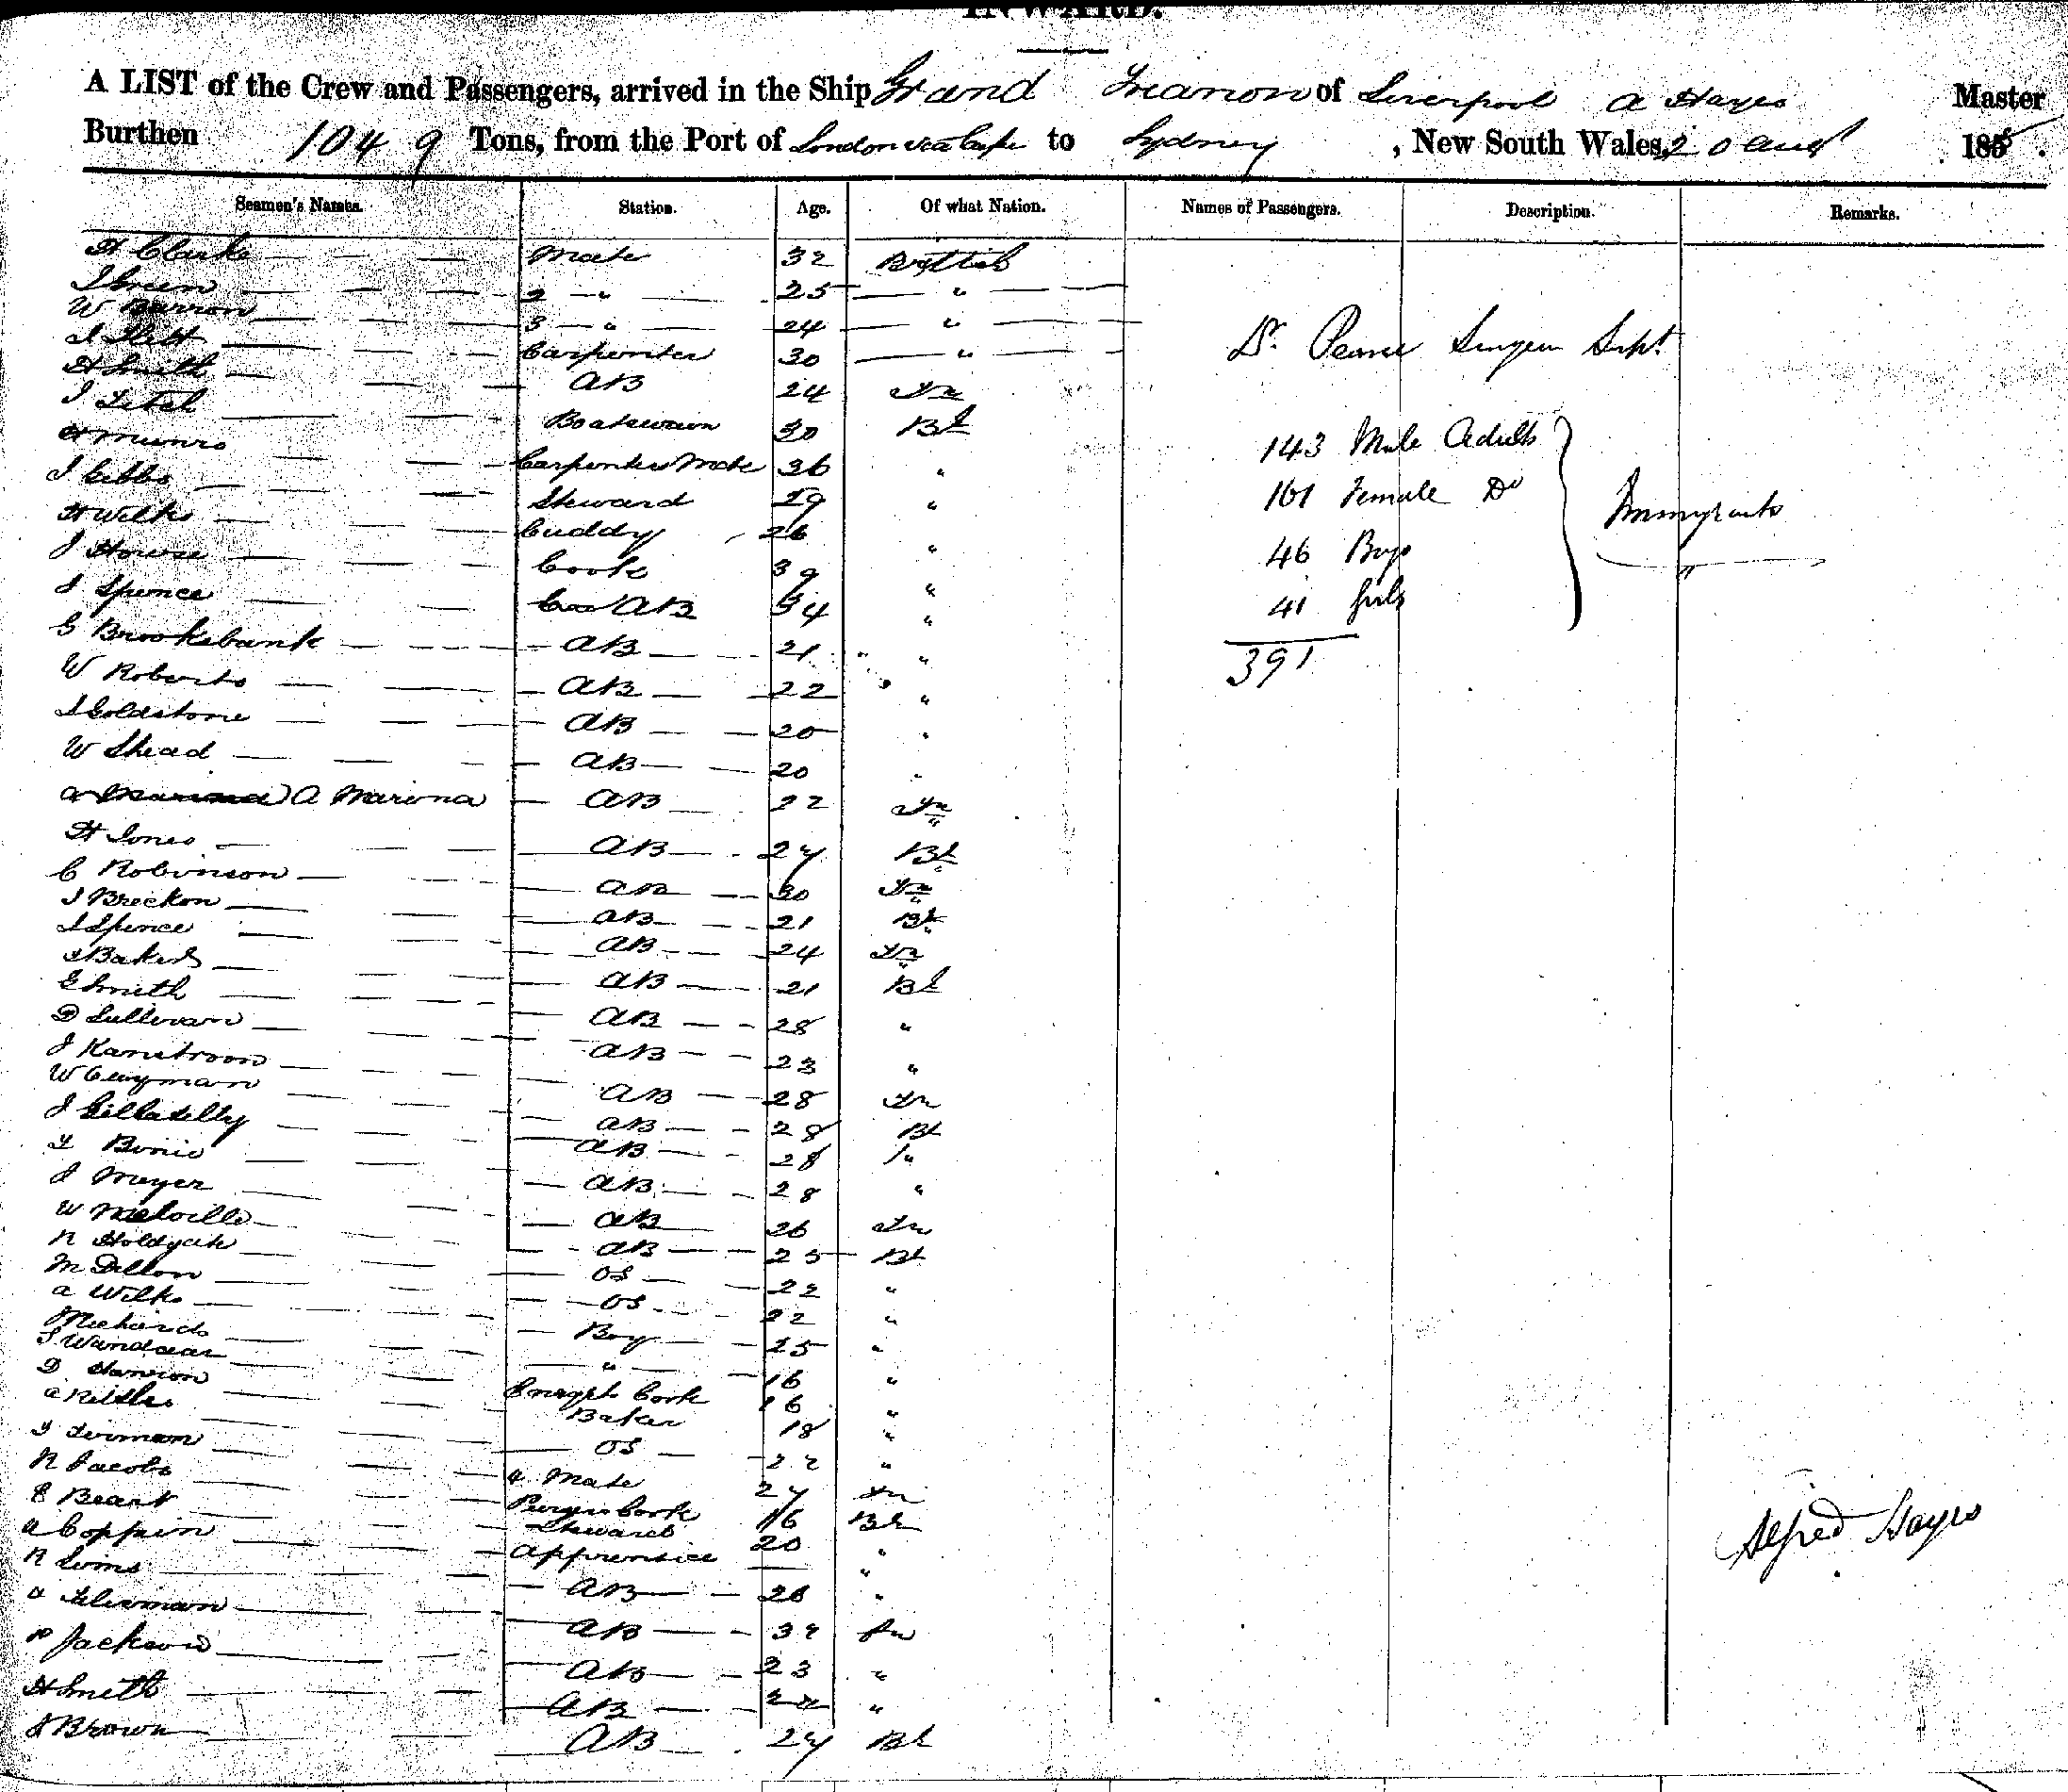 INWARD.
A LIST of the Crew and Passengers, arrived in the Ship Grand Trianon of Liverpool A Hayes Master
Burthen 1049 Tons, from the Port of London via Cape to Sydney, New South Wales, 20 Augt 1858.
Seamen's Names. Station. Age. Of what Nation. Names of Passengers. Description. Remarks.
H Clarke Mate 32 British
2 " 25 "
W Barron 3 " 24 "
Carpenter 30 "
H Smith AB 24 Fn
Boatswain 30 Bh
H Munro Carpenters Mate 36 "
J Gibbs Steward 19 "
H Wilks Cuddy 26 "
J Howse Cook 39 "
J Spence AB 34 "
G Brooksbank AB 21 "
W Roberts AB 22 "
J Goldstone AB 20 "
W Shead AB 20 "
A Marina AB 22 Fn
H Jones AB 27 Bh
C Robinson AB 30 Fn
J Breckon AB 21 Bh
J Spence AB 24 Fn
Baker AB 21 Bh
E Smith AB 28 "
D Sullivan AB 23 "
J AB 28 Fn
W AB 28 Bh
J AB 28 "
AB 28 "
J Meyer AB 26 Fn
W Melville AB 25 Bh
R OS 22 "
M Dillon OS 22 "
A Wilks Boy 15 "
Richards " 16 "
Cook 16 "
D Baker 18 "
A OS 22 "
4 Mate 27 Fn
R Jacobs Cook 16 Bh
E Beart Steward 20 "
A Coppin Apprentice "
R AB 26 "
AB 32 Fn
Jackson AB 23 "
H Smith AB "
J Brown AB 27 Bh
Dr. Pearce Surgeon Supt.
143 Male Adults
101 Female Do
46 Boys
41 Girls
391
Immigrants
Alfred Hayes